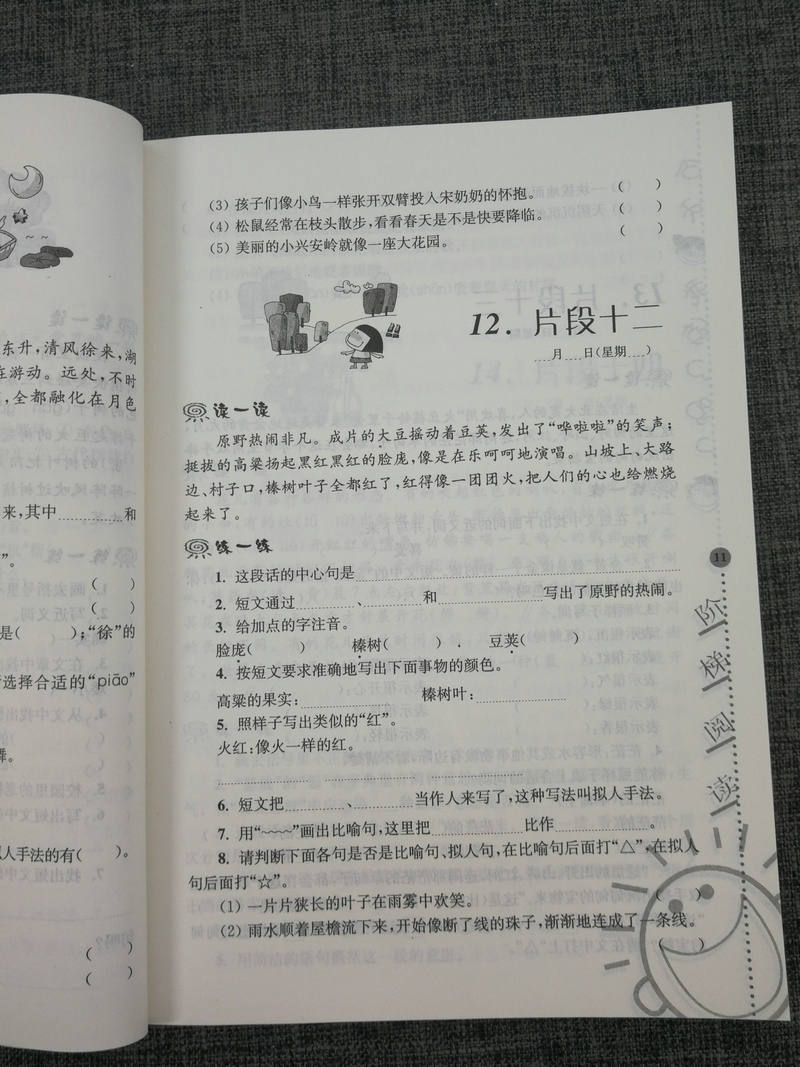 东升，清风徐来，湖
在游动。远处，不时
，全都融化在月色
来，其中 和
”。
( )
( )
是( )；“徐”的
选择合适的“piāo”
舞。
拟人手法的有( )。
( )
( )
(3) 孩子们像小鸟一样张开双臂投入宋奶奶的怀抱。 ( )
(4) 松鼠经常在枝头散步，看看春天是不是快要降临。 ( )
(5) 美丽的小兴安岭就像一座大花园。 ( )
12. 片段十二
月 日(星期 )
读一读
原野热闹非凡。成片的大豆摇动着豆荚，发出了“哗啦啦”的笑声；
挺拔的高粱扬起黑红黑红的脸庞，像是在乐呵呵地演唱。山坡上、大路
边、村子口，榛树叶子全都红了，红得像一团团火，把人们的心也给燃烧
起来了。
练一练
1. 这段话的中心句是
2. 短文通过 、 和 写出了原野的热闹。
3. 给加点的字注音。
脸庞( ) 榛树( ) 豆荚( )
4. 按短文要求准确地写出下面事物的颜色。
高粱的果实： 榛树叶：
5. 照样子写出类似的“红”。
火红：像火一样的红。
6. 短文把 、 当作人来写了，这种写法叫拟人手法。
7. 用“~~~~”画出比喻句，这里把 比作 。
8. 请判断下面各句是否是比喻句、拟人句，在比喻句后面打“△”，在拟人
句后面打“☆”。
(1) 一片片狭长的叶子在雨雾中欢笑。 ( )
(2) 雨水顺着屋檐流下来，开始像断了线的珠子，渐渐地连成了一条线。
( )
11
阶
梯
阅
读